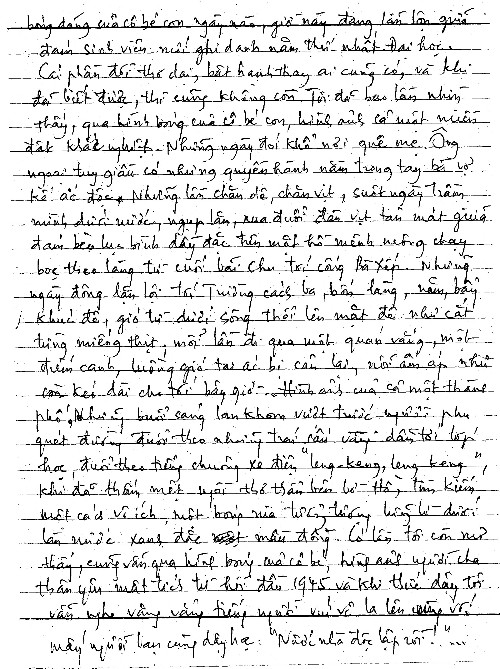 bóng dáng của cô bé con ngày nào, giờ này đang lẩn lộn giữa
đám sinh viên mới ghi danh năm thứ nhất Đại học.
Cái phần đời thơ dại, bất hạnh thay ai cũng có, và khi
đã biết được, thì cũng không còn. Tôi đã bao lần nhìn
thấy, qua hình bóng của cô bé con, hình ảnh cả một miền
đất khắc nghiệt. Những ngày đói khổ nơi quê mẹ. Ông
ngoại tuy giầu có nhưng quyền hành nằm trong tay bà vợ
kế ác độc. Những lần chăn dê, chăn vịt, suốt ngày trầm
mình dưới nước, ngụp lặn, xua đuổi đàn vịt tản mát giữa
đám bèo lục bình dầy đặc trên mặt hồ mênh mông chạy
bọc theo làng từ cuối bãi chu tới cổng Bà Xếp. Những
ngày đông lặn lội tới trường cách ba, bốn làng, năm, bẩy
khúc đê, gió từ dưới sông thổi lên mặt đê như cắt
từng miếng thịt, mỗi lần đi qua một quan vắng, một
điếm canh, luồng gió tai ác bị cản lại, nỗi ấm áp như
còn kéo dài cho tới bây giờ. Hình ảnh của cả một thành
phố, những buổi sáng lang thang vượt trước người phu
quét đường đuổi theo những trái sấu vàng dẫn tới lớp
học, đuổi theo tiếng chuông xe điện "leng-keng, leng keng",
khi đã thấm mệt ngồi thơ thẩn bên bờ Hồ, tìm kiếm
một cách vô ích, một bóng rùa tưởng tượng hiện từ dưới
làn nước xanh đặc mầu đồng. Có lần tôi còn mơ
thấy, cũng vẫn qua hình bóng của cô bé, hình ảnh người cha
thân yêu mất tích từ hồi đầu 1945 và khi thức dậy tôi
vẫn nghe văng vẳng tiếng người vui vẻ la lên cùng với
mấy người bạn cùng dậy học: "Nước nhà độc lập rồi!"...